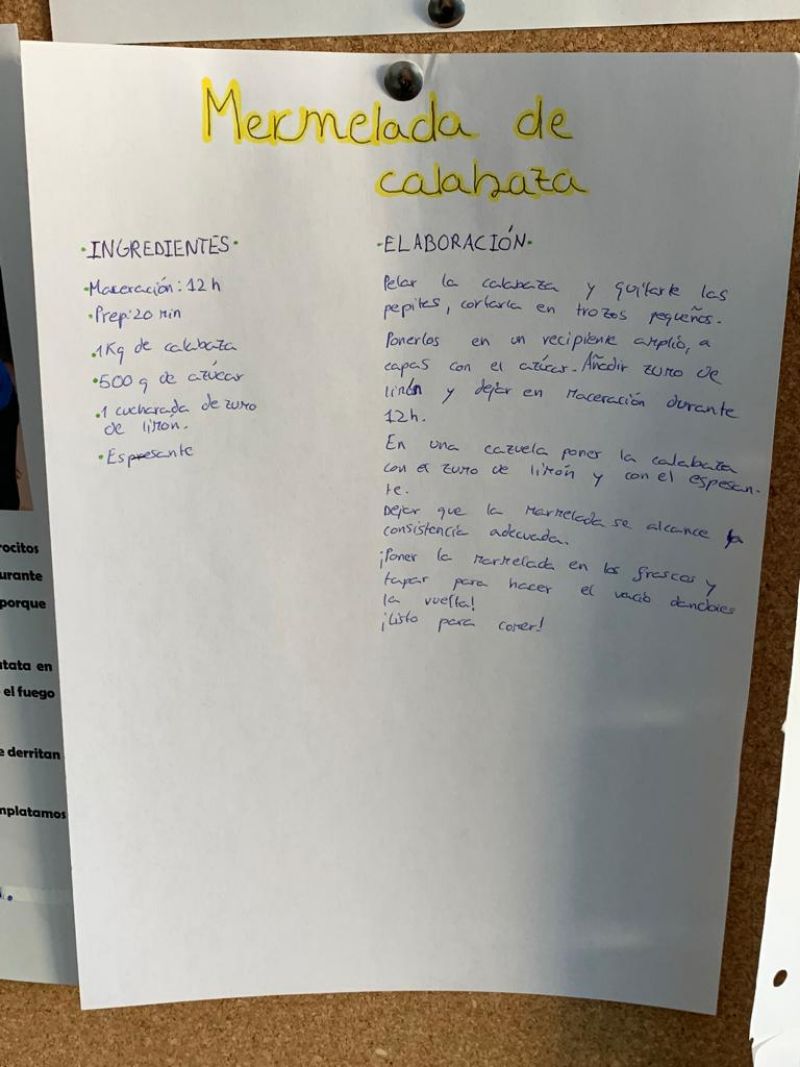 Mermelada de
calabaza
·INGREDIENTES·
·Maceración: 12 h
·Prep: 20 min
·1Kg de calabaza
·500 g de azúcar
·1 cucharada de zumo
de limon.
·Espesante
·ELABORACIÓN·
Pelar la calabaza y quitarle las
pepites, cortarla en trozos pequeños.
Ponerlos en un recipiente amplio, a
capas con el azúcar. Añadir zumo de
limón y dejar en maceración durante
12h.
En una cazuela poner la calabaza
con el zumo de limón y con el espesan-
te.
Dejar que la marmelada se alcance la
consistencia adecuada.
¡Poner la marmelada en los frascos y
tapar para hacer el vacío dandoles
la vuelta!
¡Listo para comer!
rocitos
urante
porque
tata en
el fuego
e derritan
mplatamos